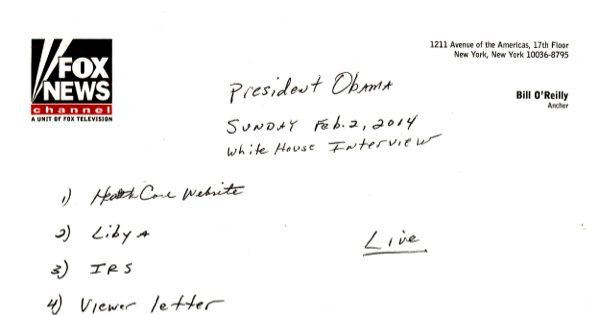 1211 Avenue of the Americas, 17th Floor
New York, New York 10036-8795
FOX
NEWS
channel
A UNIT OF FOX TELEVISION
Bill O'Reilly
Anchor
President Obama
Sunday Feb. 2, 2014
White House Interview
1) Health Care Website
2) Libya
Live
3) IRS
4) Viewer letter